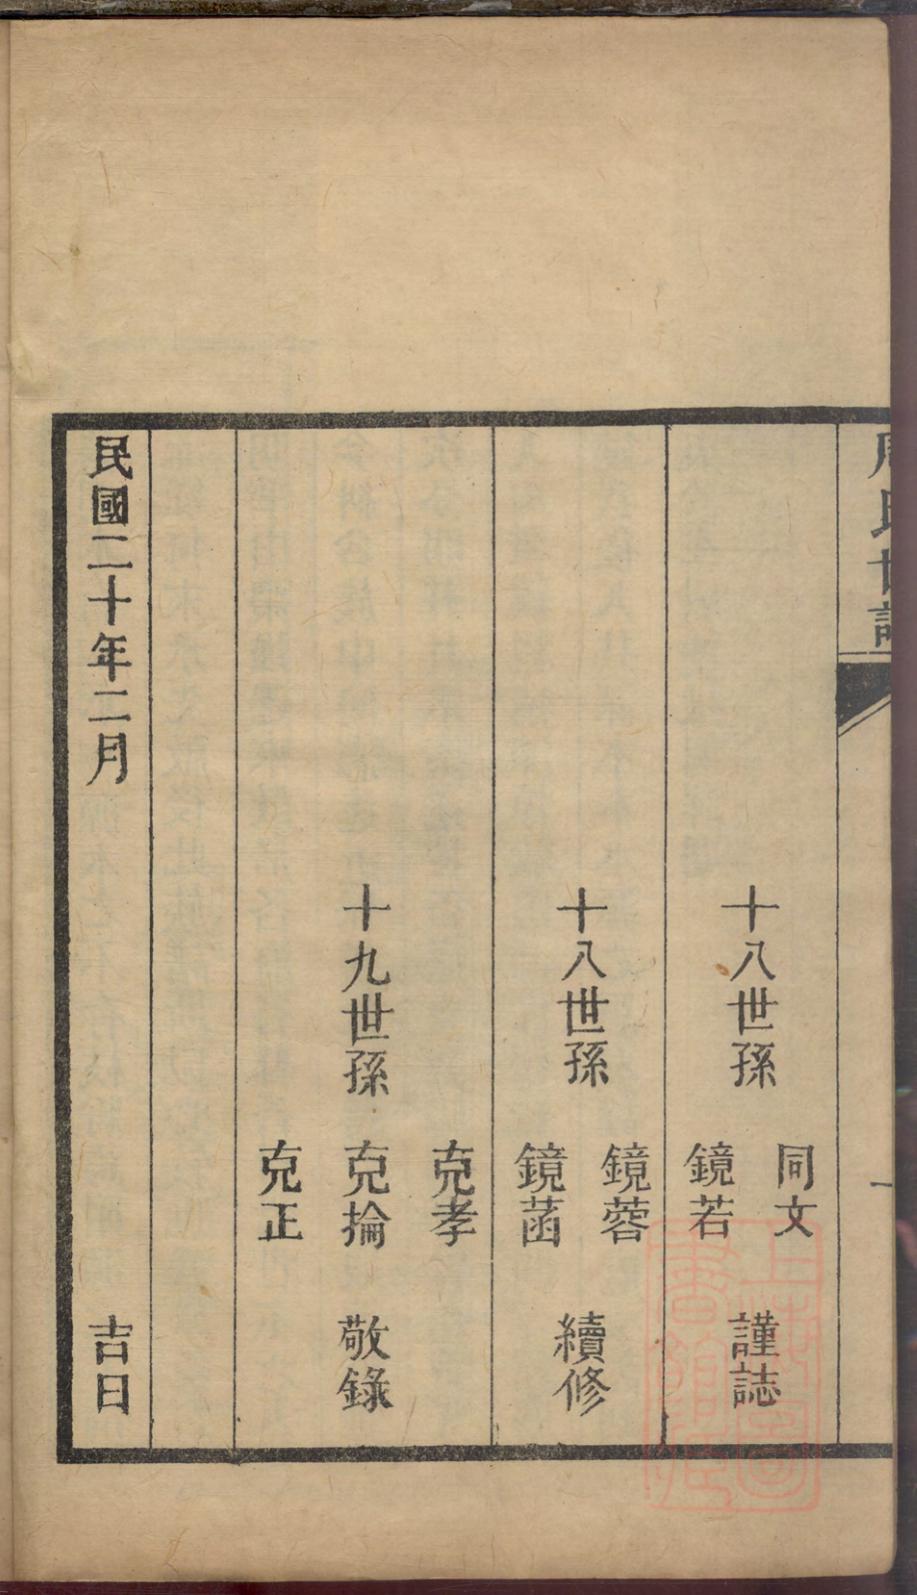 周氏世譜
一
十八世孫
同文
鏡若
謹誌
十八世孫
鏡蓉
鏡菡
續修
十九世孫
克孝
克掄
克正
敬錄
民國二十年二月 吉日